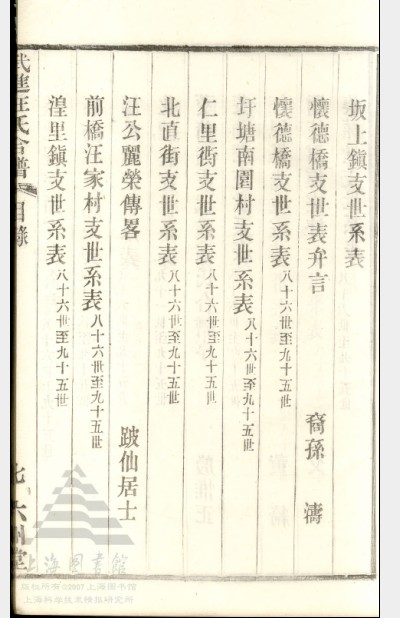 坂上鎮支世系表
懷德橋支世表弁言 裔孫 濤
懷德橋支世系表 八十六世至九十五世
圩塘南圍村支世系表 八十六世至九十五世
仁里街支世系表 八十六世至九十五世
北直街支世系表 八十六世至九十五世
汪公麗榮傳畧 跛仙居士
前橋汪家村支世系表 八十六世至九十五世
湟里鎮支世系表 八十六世至九十五世
武進汪氏合譜 目錄 七 六州堂
上海圖書館
版权所有©2007上海图书馆
上海科学技术情报研究所